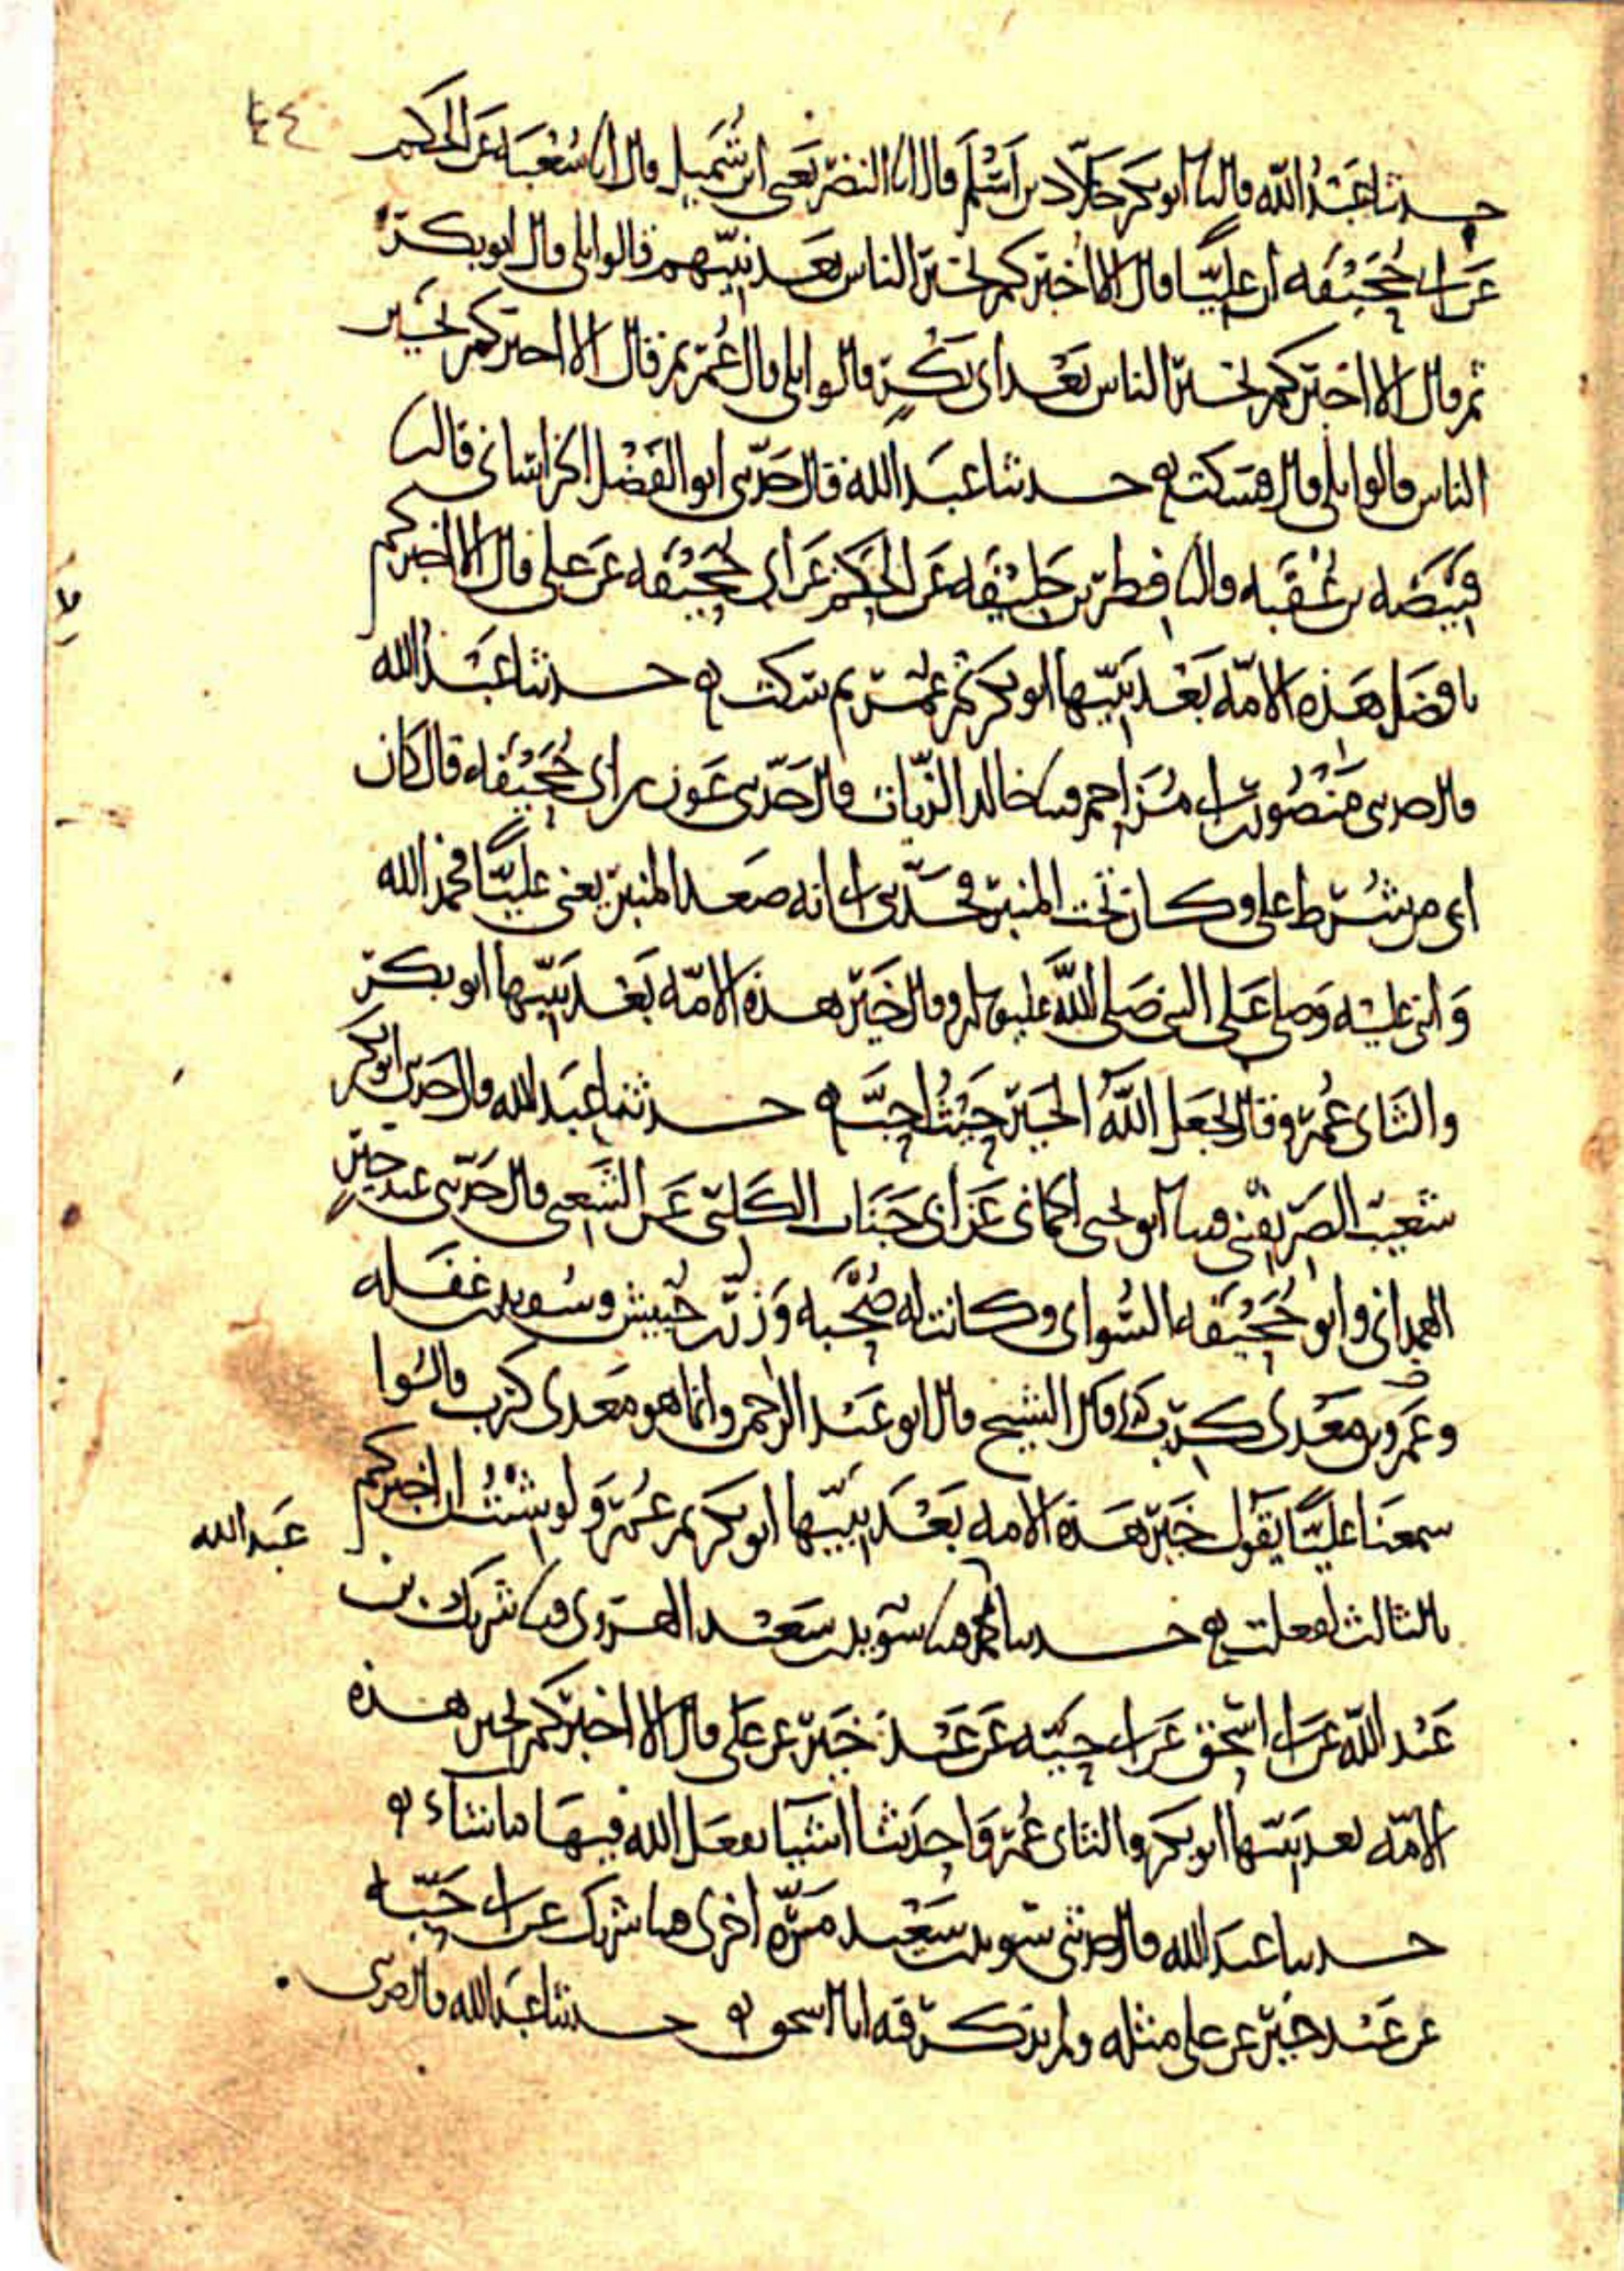 ٤٤
حدثنا عبد الله قال نا ابو بكر خلاد بن اسلم قال انا النضر يعني ابن شميل قال انا شعبة عن الحكم
عن ابي جحيفه ان عليا قال الا اخبركم بخير الناس بعد نبيهم قالوا بلى قال ابو بكر
ثم قال الا اخبركم بخير الناس بعد ابي بكر قالوا بلى قال عمر ثم قال الا اخبركم بخير
الناس قالوا بلى قال فسكت ه حدثنا عبد الله قال حدثني ابو الفضل الخراساني قال نا
قبيصه بن عقبه قال نا فطر بن خليفه عن الحكم عن ابي جحيفه عن علي قال الا اخبركم
بافضل هذه الامه بعد نبيها ابو بكر ثم عمر ثم سكت ه حدثنا عبد الله
قال حدثني منصور بن ابي مزاحم قثنا خالد الزيات قال حدثني عون بن ابي جحيفه قال كان
ابي من شرط علي وكان تحت المنبر فحدثني ابي انه صعد المنبر يعني عليا فحمد الله
واثنى عليه وصلى على النبي صلى الله عليه وسلم وقال خير هذه الامه بعد نبيها ابو بكر
والثاني عمر وقال يجعل الله الخير حيث احب ه حدثنا عبد الله قال حدثني ابو بكر
شعيب الصريفني قثنا ابو يحيى الحماني عن ابي جناب الكلبي عن الشعبي قال حدثني عبد خير
الهمداني وابو جحيفه السوائي وكانت له صحبه وزر بن حبيش وسويد بن غفله
وعمرو بن معدي كرب كذا قال الشيخ قال ابو عبد الرحمن وانما هو معدي كرب قالوا
سمعنا عليا يقول خير هذه الامه بعد نبيها ابو بكر ثم عمر ولو شئت ان اخبركم
عبد الله
بالثالث لفعلت ه حدثنا قثنا سويد بن سعيد الهروي قثنا شريك بن
عبد الله عن ابي اسحق عن ابي حيه عن عبد خير عن علي قال الا اخبركم بخير هذه
الامه بعد نبيها ابو بكر والثاني عمر واحدثنا اشيا يفعل الله فيها ما شاء ه
حدثنا عبد الله قال حدثني سويد بن سعيد مره اخرى قثنا شريك عن ابي حيه
عن عبد خير عن علي مثله ولم يذكر فيه ابا اسحق ه حدثنا عبد الله قال حدثني